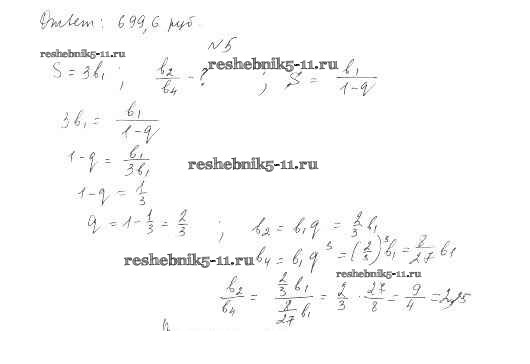 Ответ: 699,6 руб.
№5
reshebnik5-11.ru
reshebnik5-11.ru
S = 3b₁ ; b₂/b₄ - ? ; S = b₁/(1-q)
3b₁ = b₁/(1-q)
1-q = b₁/3b₁
reshebnik5-11.ru
1-q = 1/3
q = 1 - 1/3 = 2/3 ; b₂ = b₁q = 2/3 b₁
reshebnik5-11.ru
b₄ = b₁q³ = (2/3)³b₁ = 8/27 b₁
reshebnik5-11.ru
b₂/b₄ = (2/3 b₁)/(8/27 b₁) = 2/3 · 27/8 = 9/4 = 2,25